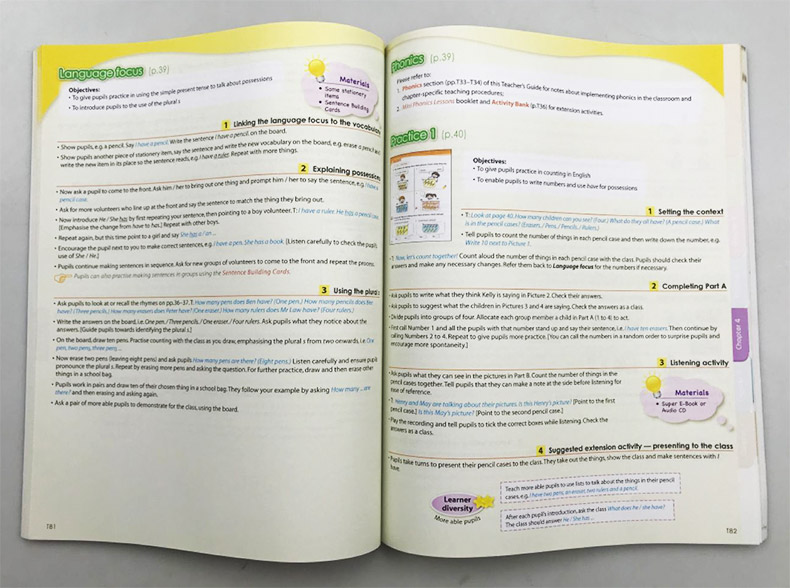 Language focus (p.39)
Objectives:
• To give pupils practice in using the simple present tense to talk about possessions
• To introduce pupils to the use of the plural s
Materials
• Some stationery
items
• Sentence Building
Cards
1 Linking the language focus to the vocabulary
• Show pupils, e.g. a pencil. Say I have a pencil. Write the sentence I have a pencil. on the board.
• Show pupils another piece of stationery item, say the sentence and write the new vocabulary on the board, e.g. erase a pencil and
write the new item in its place so the sentence reads, e.g. I have a ruler. Repeat with more things.
2 Explaining possession
• Now ask a pupil to come to the front. Ask him / her to bring out one thing and prompt him / her to say the sentence, e.g. I have a
pencil case.
• Ask for more volunteers who line up at the front and say the sentence to match the thing they bring out.
• Now introduce He / She has by first repeating your sentence, then pointing to a boy volunteer. T: I have a ruler. He has a pencil case.
[Emphasise the change from have to has.] Repeat with other boys.
• Repeat again, but this time point to a girl and say She has a / an ...
• Encourage the pupil next to you to make correct sentences, e.g. I have a pen. She has a book. [Listen carefully to check the pupils'
use of She / He.]
• Pupils continue making sentences in sequence. Ask for new groups of volunteers to come to the front and repeat the process.
Pupils can also practise making sentences in groups using the Sentence Building Cards.
3 Using the plural s
• Ask pupils to look at or recall the rhymes on pp.36–37. T: How many pens does Ben have? (One pen.) How many pencils does Ben
have? (Three pencils.) How many erasers does Peter have? (One eraser.) How many rulers does Mr Law have? (Four rulers.)
• Write the answers on the board, i.e. One pen. / Three pencils. / One eraser. / Four rulers. Ask pupils what they notice about the
answers. [Guide pupils towards identifying the plural s.]
• On the board, draw ten pens. Practise counting with the class as you draw, emphasising the plural s from two onwards, i.e. One
pen, two pens, three pens ...
• Now erase two pens (leaving eight pens) and ask pupils How many pens are there? (Eight pens.) Listen carefully and ensure pupils
pronounce the plural s. Repeat by erasing more pens and asking the question. For further practice, draw and then erase other
things in a school bag.
• Pupils work in pairs and draw ten of their chosen thing in a school bag. They follow your example by asking How many ... are
there? and then erasing and asking again.
• Ask a pair of more able pupils to demonstrate for the class, using the board.
T81
Phonics (p.39)
Please refer to:
1. Phonics section (pp.T33–T34) of this Teacher's Guide for notes about implementing phonics in the classroom and
chapter-specific teaching procedures;
2. Mini Phonics Lessons booklet and Activity Bank (p.T36) for extension activities.
Practice 1 (p.40)
Objectives:
• To give pupils practice in counting in English
• To enable pupils to write numbers and use have for possessions
1 Setting the context
• T: Look at page 40. How many children can you see? (Four.) What do they all have? (A pencil case.) What
is in the pencil cases? (Erasers. / Pens. / Pencils. / Rulers.)
• Tell pupils to count the number of things in each pencil case and then write down the number, e.g.
Write 10 next to Picture 1.
• T: Now, let's count together! Count aloud the number of things in each pencil case with the class. Pupils should check their
answers and make any necessary changes. Refer them back to Language focus for the numbers if necessary.
2 Completing Part A
• Ask pupils to write what they think Kelly is saying in Picture 2. Check their answers.
• Ask pupils to suggest what the children in Pictures 3 and 4 are saying. Check the answers as a class.
• Divide pupils into groups of four. Allocate each group member a child in Part A (1 to 4) to act.
• First call Number 1 and all the pupils with that number stand up and say their sentence, i.e. I have ten erasers. Then continue by
calling Numbers 2 to 4. Repeat to give pupils more practice. [You can call the numbers in a random order to surprise pupils and
encourage more spontaneity.]
Chapter 4
3 Listening activity
• Ask pupils what they can see in the pictures in Part B. Count the number of things in the
pencil cases together. Tell pupils that they can make a note at the side before listening for
ease of reference.
• T: Henry and May are talking about their pictures. Is this Henry's picture? [Point to the first
pencil case.] Is this May's picture? [Point to the second pencil case.]
• Play the recording and tell pupils to tick the correct boxes while listening. Check the
answers as a class.
Materials
• Super E-Book or
Audio CD
4 Suggested extension activity — presenting to the class
• Pupils take turns to present their pencil cases to the class. They take out the things, show the class and make sentences with I
have.
Learner
diversity
More able pupils
Teach more able pupils to use lists to talk about the things in their pencil
cases, e.g. I have two pens, an eraser, two rulers and a pencil.
After each pupil's introduction, ask the class What does he / she have?
The class should answer He / She has ...
T82